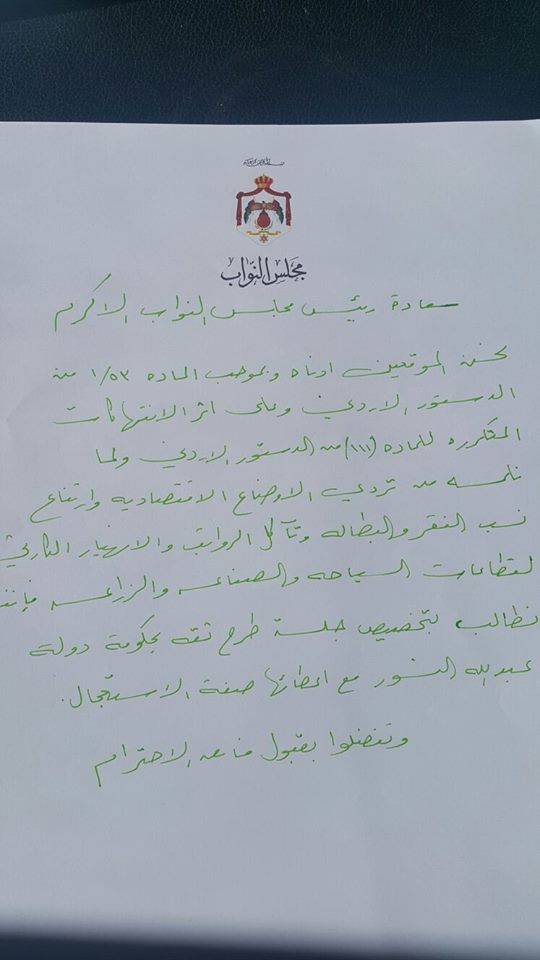 مجلس النواب
سعادة رئيس مجلس النواب الاكرم
نحن الموقعين ادناه وبموجب الماده ١/٥٣ من
الدستور الاردني وعلى اثر الانتهاكات
المتكرره للماده (١١١) من الدستور الاردني ولما
نلمسه من تردي الاوضاع الاقتصاديه وارتفاع
نسب الفقر والبطاله وتآكل الرواتب والانهيار الكارثي
لقطاعات السياحه والصناعه والزراعه فإننا
نطالب بتخصيص جلسة طرح ثقه بحكومة دولة
عبدالله النسور مع اعطائها صفة الاستعجال.
وتفضلوا بقبول فائق الاحترام